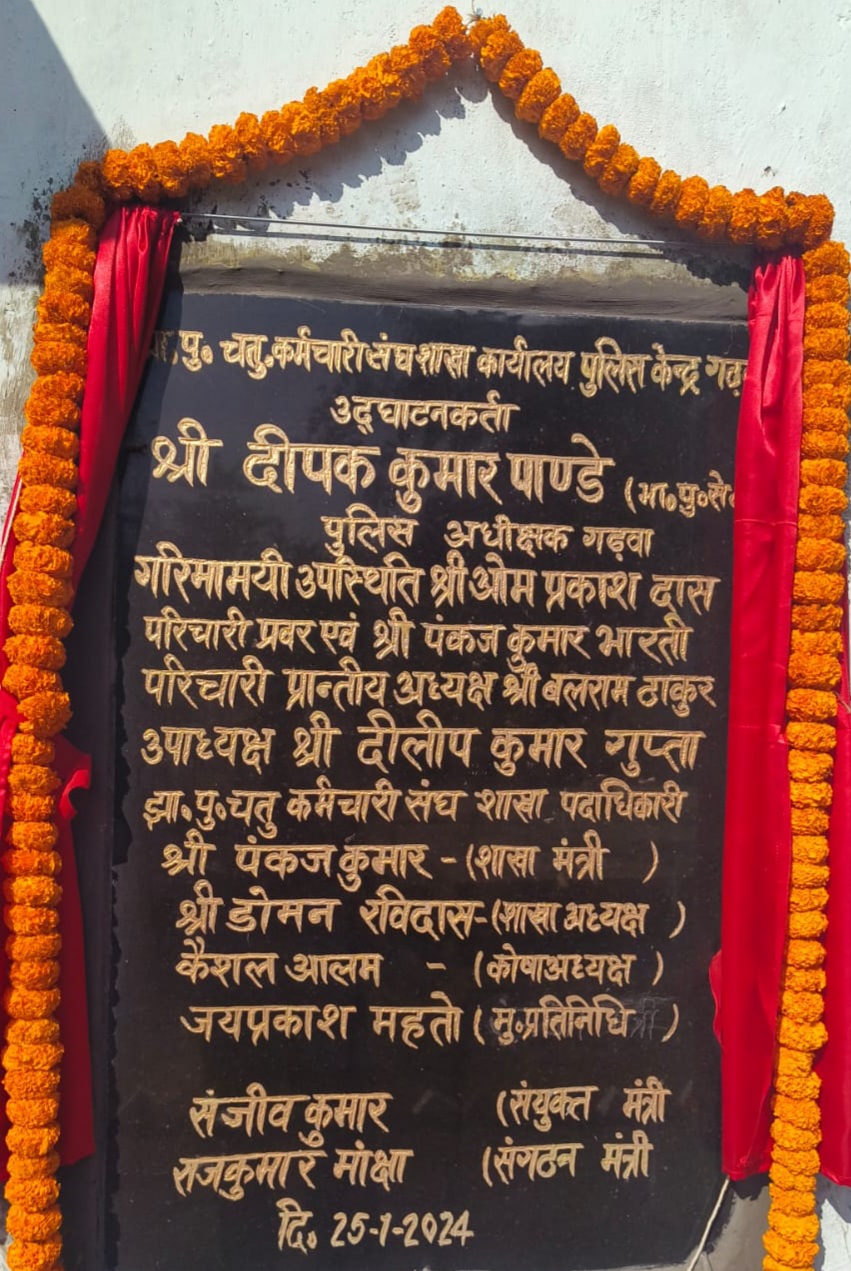 पु॰ चतु॰ कर्मचारी संघ शाखा कार्यालय पुलिस केन्द्र
उद्घाटनकर्ता
श्री दीपक कुमार पाण्डे (भा॰पु॰से॰
पुलिस अधीक्षक गढ़वा
गरिमामयी उपस्थिति श्री ओम प्रकाश दास
परिचारी प्रवर एवं श्री पंकज कुमार भारती
परिचारी प्रान्तीय अध्यक्ष श्री बलराम ठाकुर
उपाध्यक्ष श्री दीलीप कुमार गुप्ता
झा॰पु॰चतु कर्मचारी संघ शाखा पदाधिकारी
श्री पंकज कुमार - (शाखा मंत्री )
श्री डोमन रविदास - (शाखा अध्यक्ष )
कैशल आलम - (कोषाअध्यक्ष )
जयप्रकाश महतो ( मु॰प्रतिनिधि )
संजीव कुमार (संयुक्त मंत्री
राजकुमार मांक्षा (संगठन मंत्री
दि॰ 25-1-2024